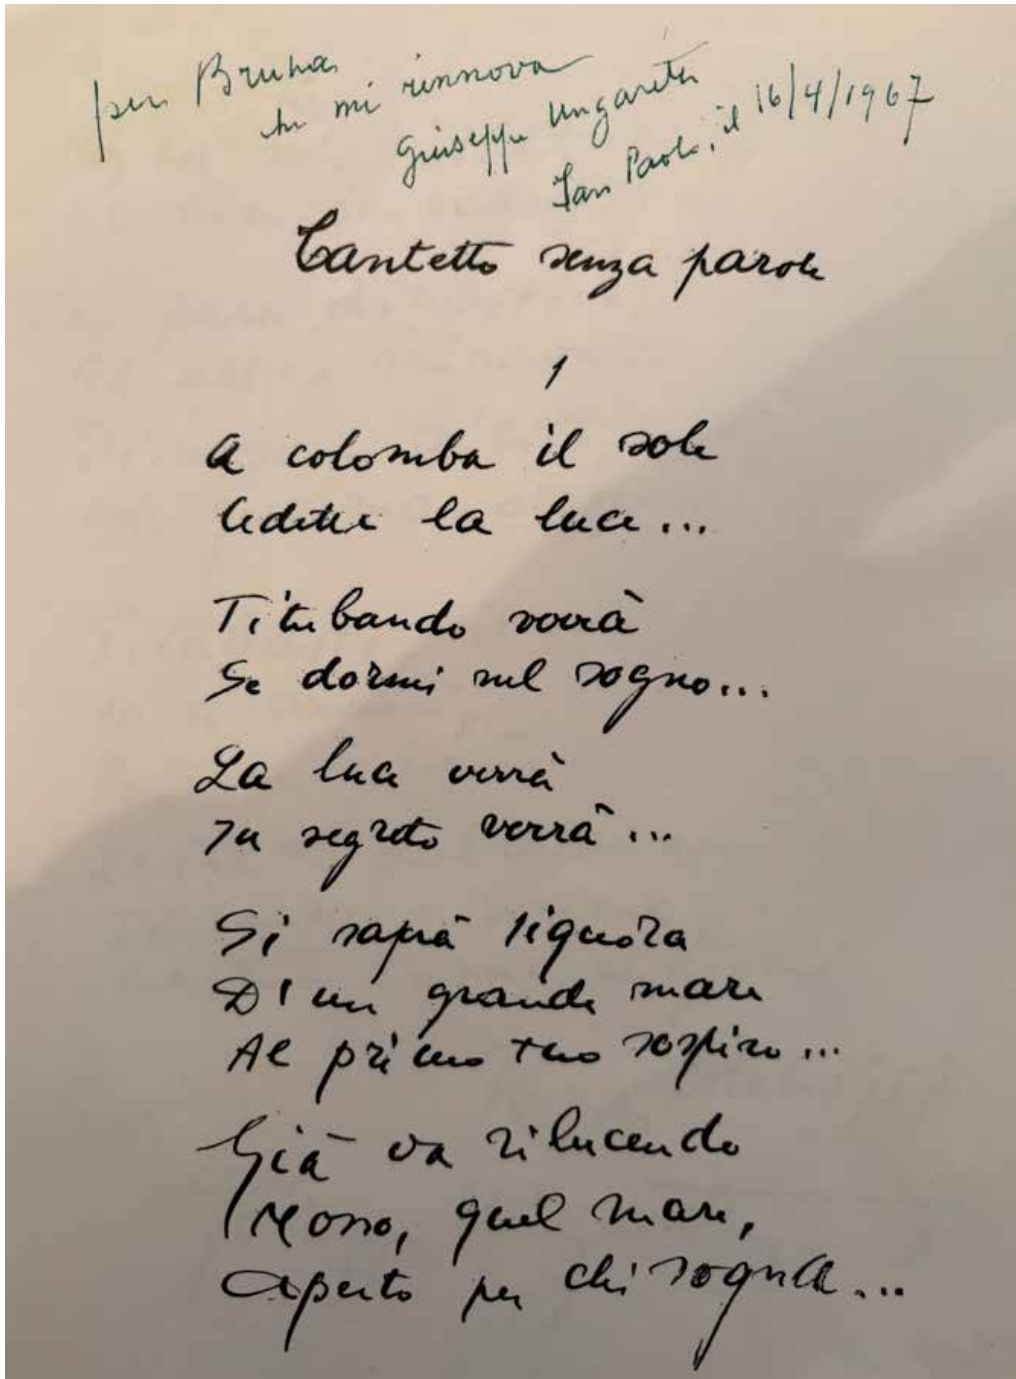 per Bruna
che mi rinnova
Giuseppe Ungaretti
San Paolo, il 16/4/1967
Cantetto senza parole
1
A colomba il sole
Cedette la luce...
Tubando verrà
Se dormi nel sogno...
La luce verrà
In segreto vivrà...
Si saprà signora
D'un grande mare
Al primo tuo sospiro...
Già va rilucendo
Mosso, quel mare,
Aperto per chi sogna...